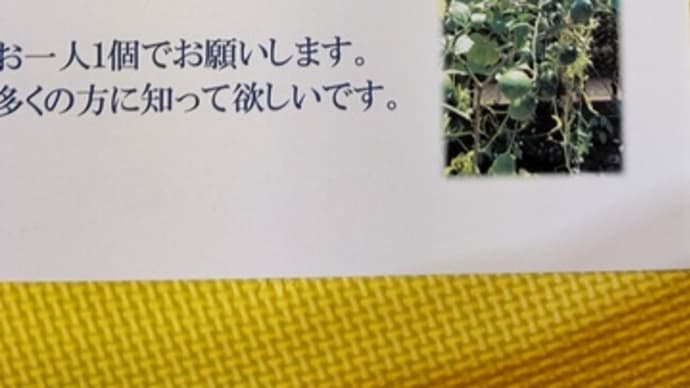 お一人1個でお願いします。
多くの方に知って欲しいです。